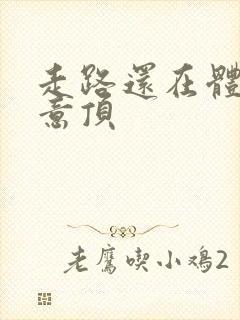 走路還在體
意頂
老鷹喫小鸡2